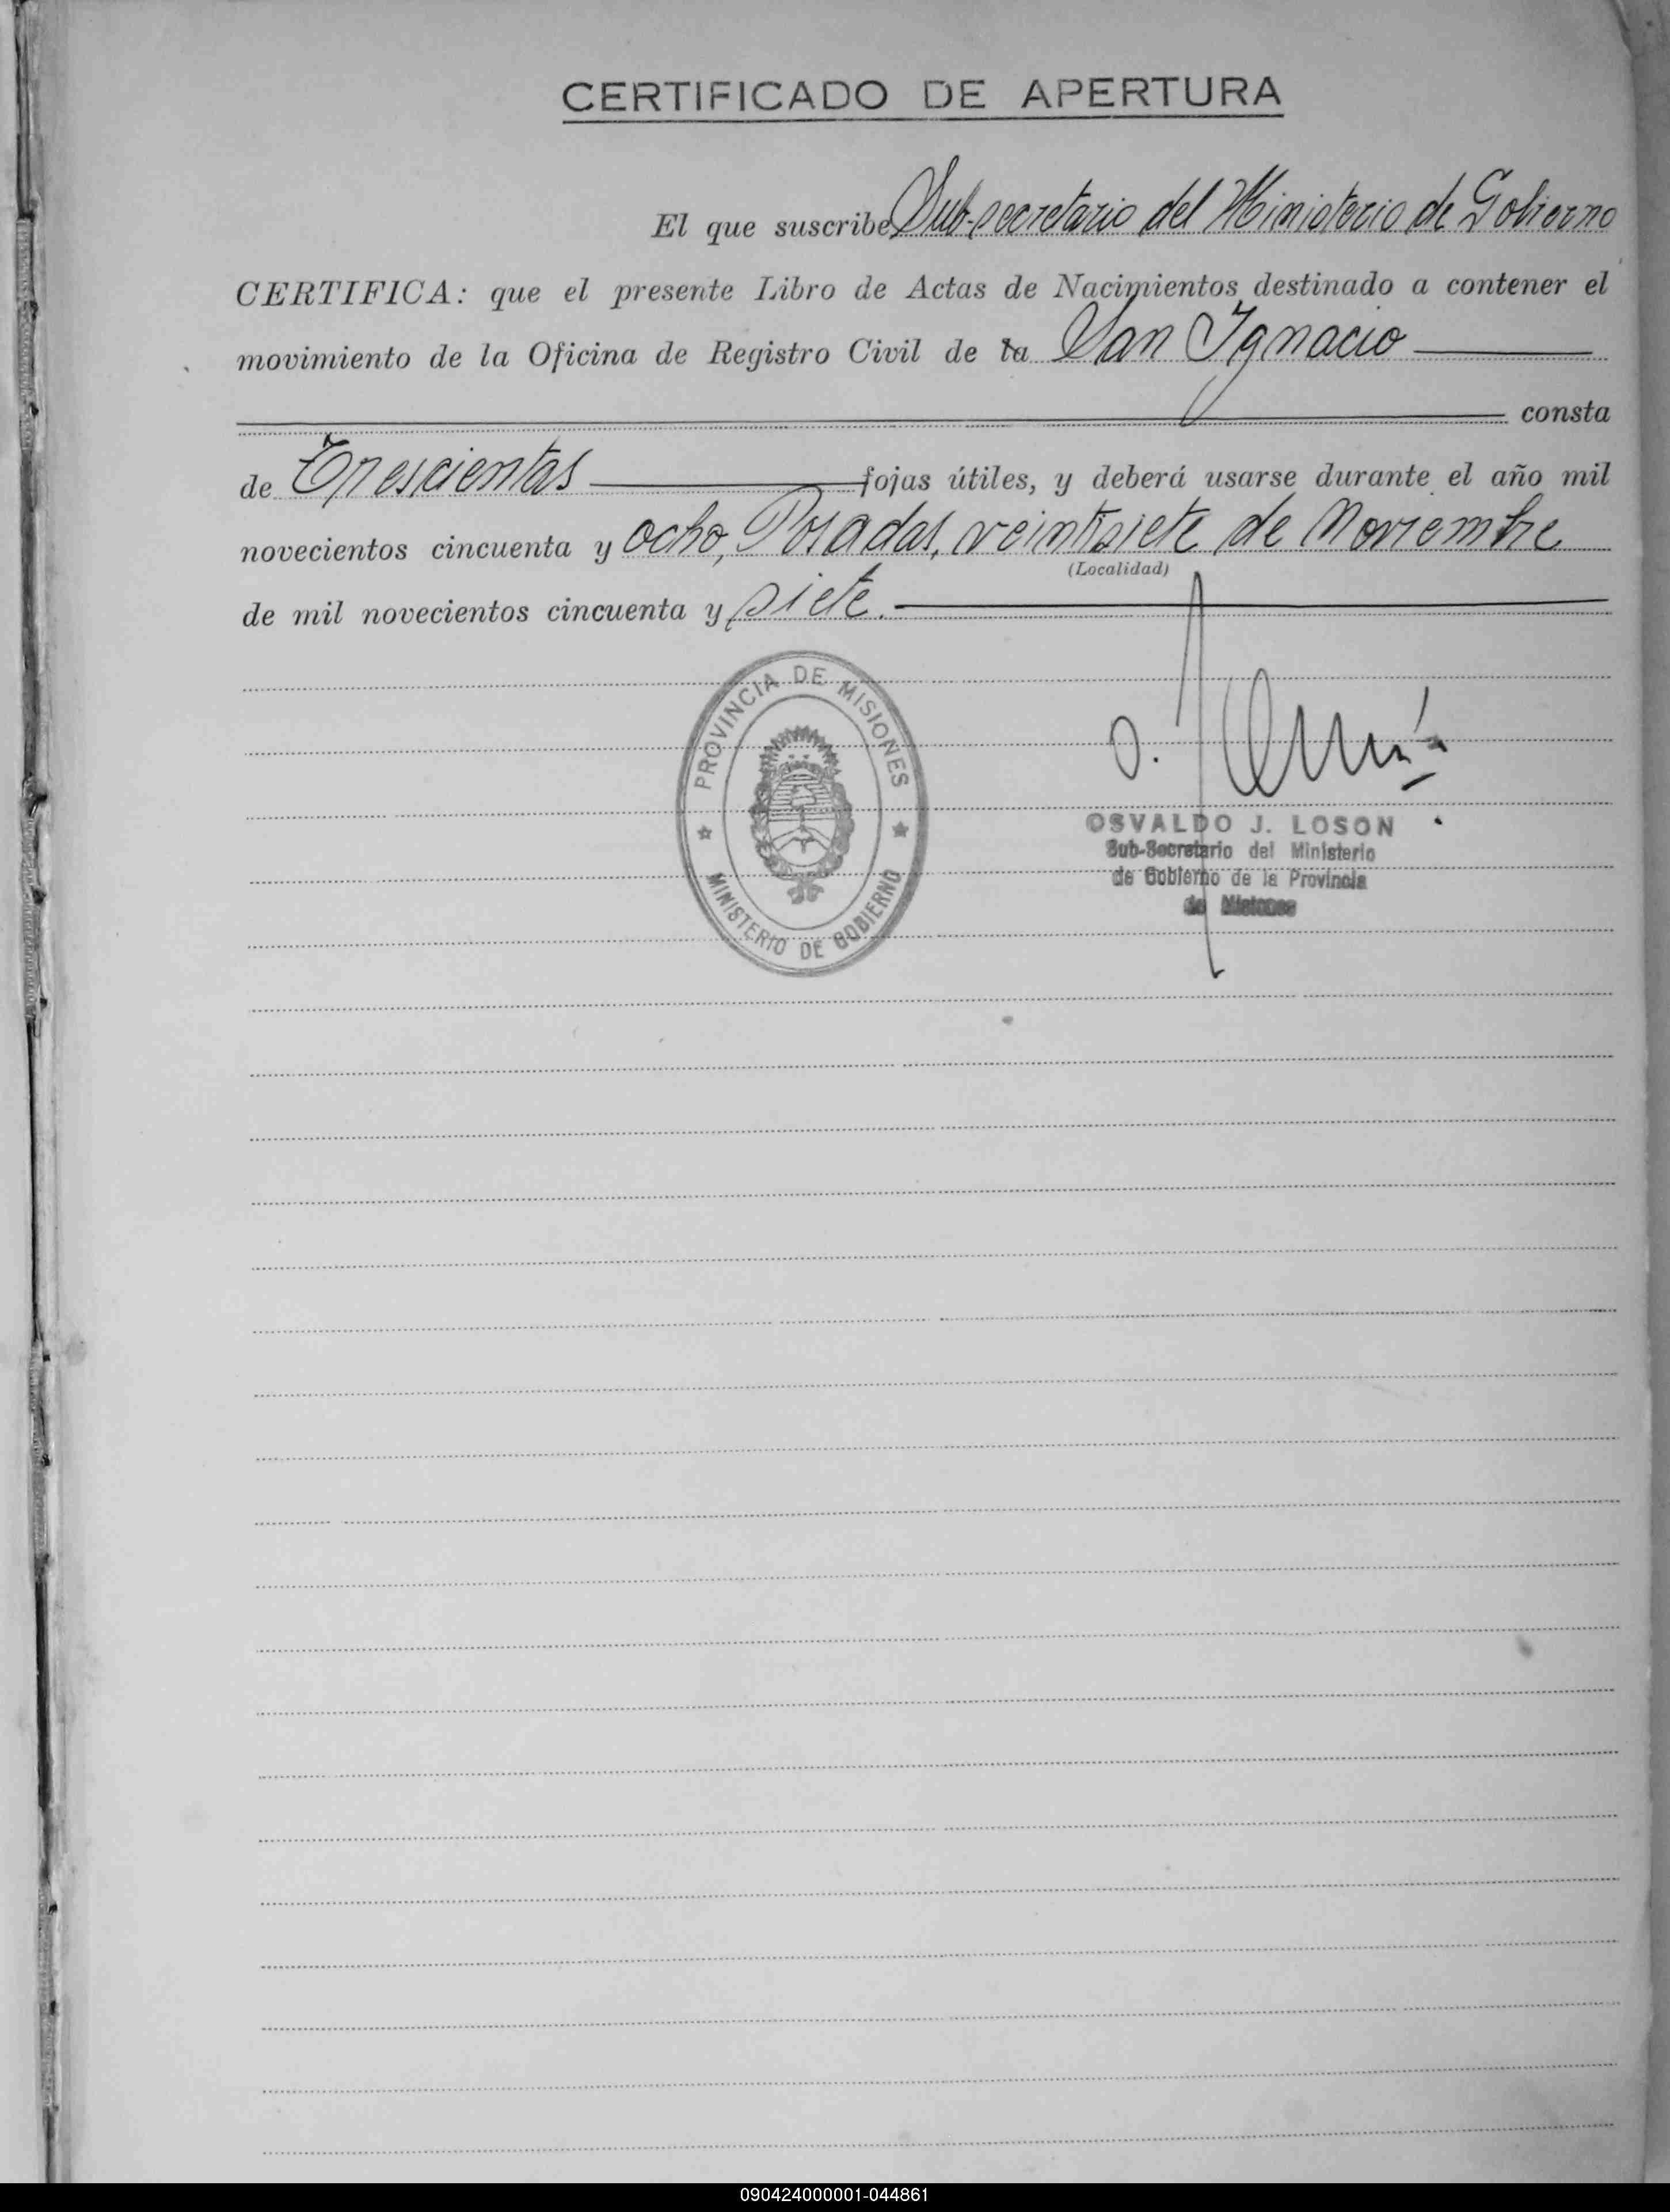 CERTIFICADO DE APERTURA
El que suscribe Sub-secretario del Ministerio de Gobierno
CERTIFICA: que el presente Libro de Actas de Nacimientos destinado a contener el
movimiento de la Oficina de Registro Civil de la San Ignacio
consta
de Trescientas fojas útiles, y deberá usarse durante el año mil
novecientos cincuenta y ocho, Posadas, veintisiete de Noviembre
(Localidad)
de mil novecientos cincuenta y siete.
PROVINCIA DE MISIONES
MINISTERIO DE GOBIERNO
OSVALDO J. LOSON
Sub-Secretario del Ministerio
de Gobierno de la Provincia
de Misiones
090424000001-044861